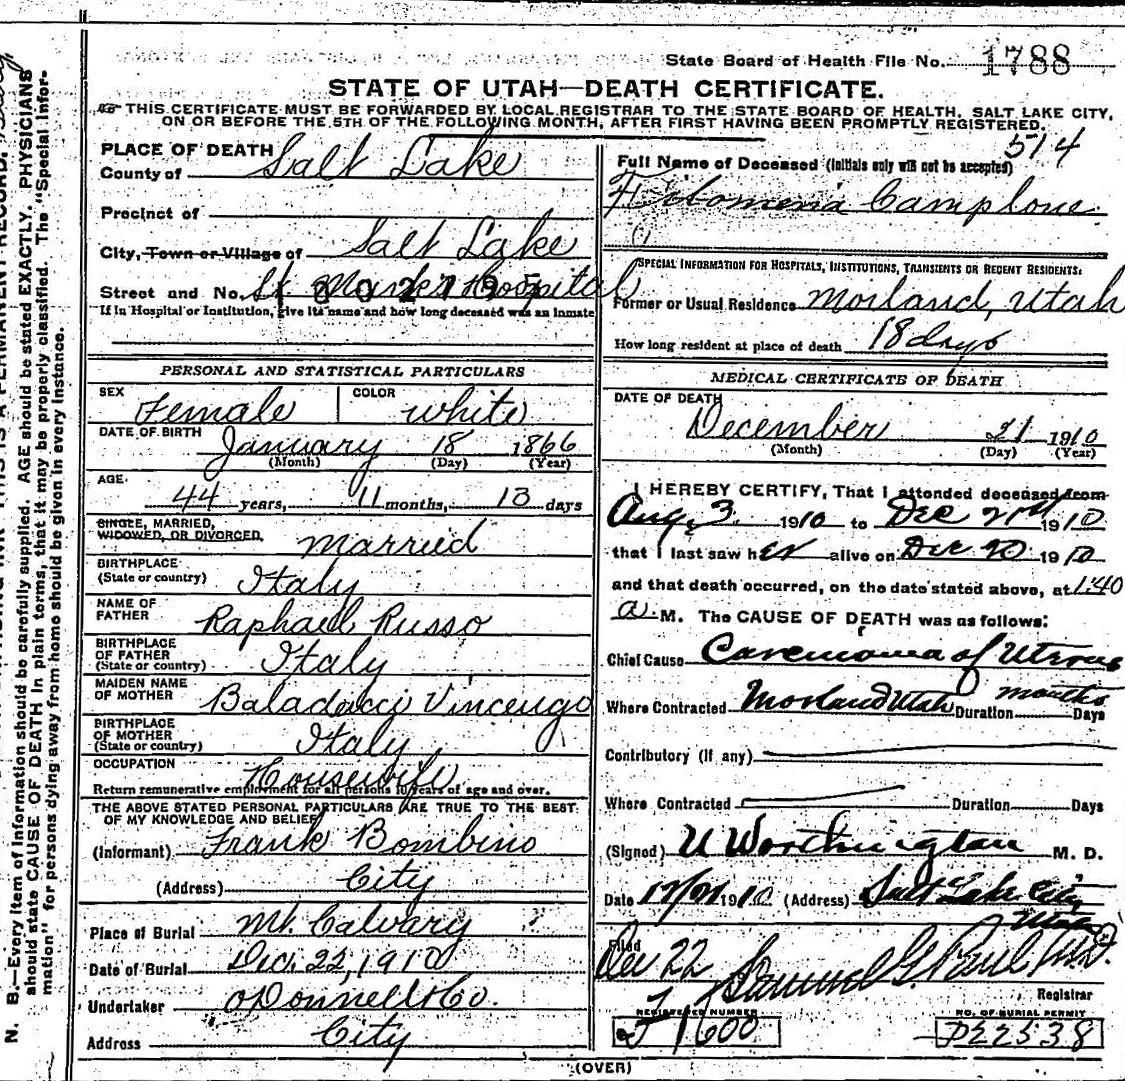 State Board of Health File No. 1788
STATE OF UTAH—DEATH CERTIFICATE.
THIS CERTIFICATE MUST BE FORWARDED BY LOCAL REGISTRAR TO THE STATE BOARD OF HEALTH, SALT LAKE CITY,
ON OR BEFORE THE 5TH OF THE FOLLOWING MONTH, AFTER FIRST HAVING BEEN PROMPTLY REGISTERED.
514
PLACE OF DEATH
County of Salt Lake
Precinct of
City, Town or Village of Salt Lake
Street and No. St Marks Hospital
If in Hospital or Institution, give its name and how long deceased was an inmate
PERSONAL AND STATISTICAL PARTICULARS
SEX Female COLOR White
DATE OF BIRTH January 18 1866
(Month) (Day) (Year)
AGE. 44 years, 11 months, 13 days
SINGLE, MARRIED,
WIDOWED, OR DIVORCED, Married
BIRTHPLACE
(State or country) Italy
NAME OF
FATHER Raphael Russo
BIRTHPLACE
OF FATHER
(State or country) Italy
MAIDEN NAME
OF MOTHER Baladacci Vincengo
BIRTHPLACE
OF MOTHER
(State or country) Italy
OCCUPATION Housewife
Return remunerative employment for all persons 10 years of age and over.
THE ABOVE STATED PERSONAL PARTICULARS ARE TRUE TO THE BEST
OF MY KNOWLEDGE AND BELIEF
(Informant) Frank Bombino
(Address) City
Place of Burial Mt. Calvary
Date of Burial Dec. 22, 1910
Undertaker O'Donnell & Co.
Address City
Full Name of Deceased (Initials only will not be accepted)
Filomenia Camplone
SPECIAL INFORMATION FOR HOSPITALS, INSTITUTIONS, TRANSIENTS OR RECENT RESIDENTS:
Former or Usual Residence Morland, Utah
How long resident at place of death 18 days
MEDICAL CERTIFICATE OF DEATH
DATE OF DEATH
December 21 1910
(Month) (Day) (Year)
I HEREBY CERTIFY, That I attended deceased from
Aug, 3 1910 to Dec 21st 1910
that I last saw her alive on Dec 20 1910
and that death occurred, on the date stated above, at 1:40
a. M. The CAUSE OF DEATH was as follows:
Chief Cause Carcinoma of Uterus
Where Contracted Morland Utah Duration months Days
Contributory (If any)
Where Contracted Duration Days
(Signed) U Worthington M. D.
Date 12/21 1910 (Address) Salt Lake City,
Utah
Filed
Dec 22 Samuel G. Paul M.D.
Registrar
REGISTERED NUMBER
J 1600
NO. OF BURIAL PERMIT
D22538
(OVER)
N. B.—Every item of information should be carefully supplied. AGE should be stated EXACTLY. PHYSICIANS
should state CAUSE OF DEATH in plain terms, that it may be properly classified. The "Special Infor-
mation" for persons dying away from home should be given in every instance.